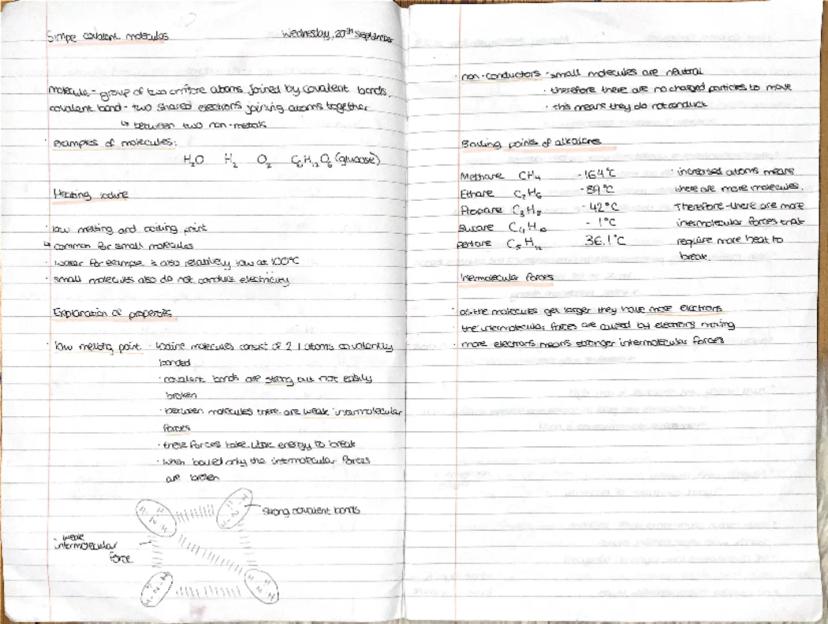 Simpe covalent molecules
Wednesday, 20th September
molecule - group of two or more atoms joined by covalent bonds.
covalent bond - two shared electrons joining atoms together
↳ between two non-metals
· examples of molecules:
H₂O H₂ O₂ C₆H₁₂O₆ (glucose)
Heating iodine
· low melting and boiling point
↳ common for small molecules
· water for example is also relatively low at 100°C
· small molecules also do not conduct electricity
Explanation of properties
· low melting point · Iodine molecules consist of 2 I atoms covalently
bonded
· covalent bonds are strong but not easily
broken
· between molecules there are weak intermolecular
forces
· these forces take little energy to break
· when boiled only the intermolecular forces
are broken
strong covalent bonds
· weak
intermolecular
force
· non-conductors · small molecules are neutral
· therefore there are no charged particles to move
· this means they do not conduct
Boiling points of alkanes
Methane CH₄ -164°C · increased atoms means
Ethane C₂H₆ -89°C there are more molecules.
Propane C₃H₈ -42°C Therefore there are more
Butane C₄H₁₀ -1°C intermolecular forces that
pentane C₅H₁₂ 36.1°C require more heat to
break.
Intermolecular forces
· as the molecules get larger they have more electrons
· the intermolecular forces are caused by electrons moving
· more electrons means stronger intermolecular forces